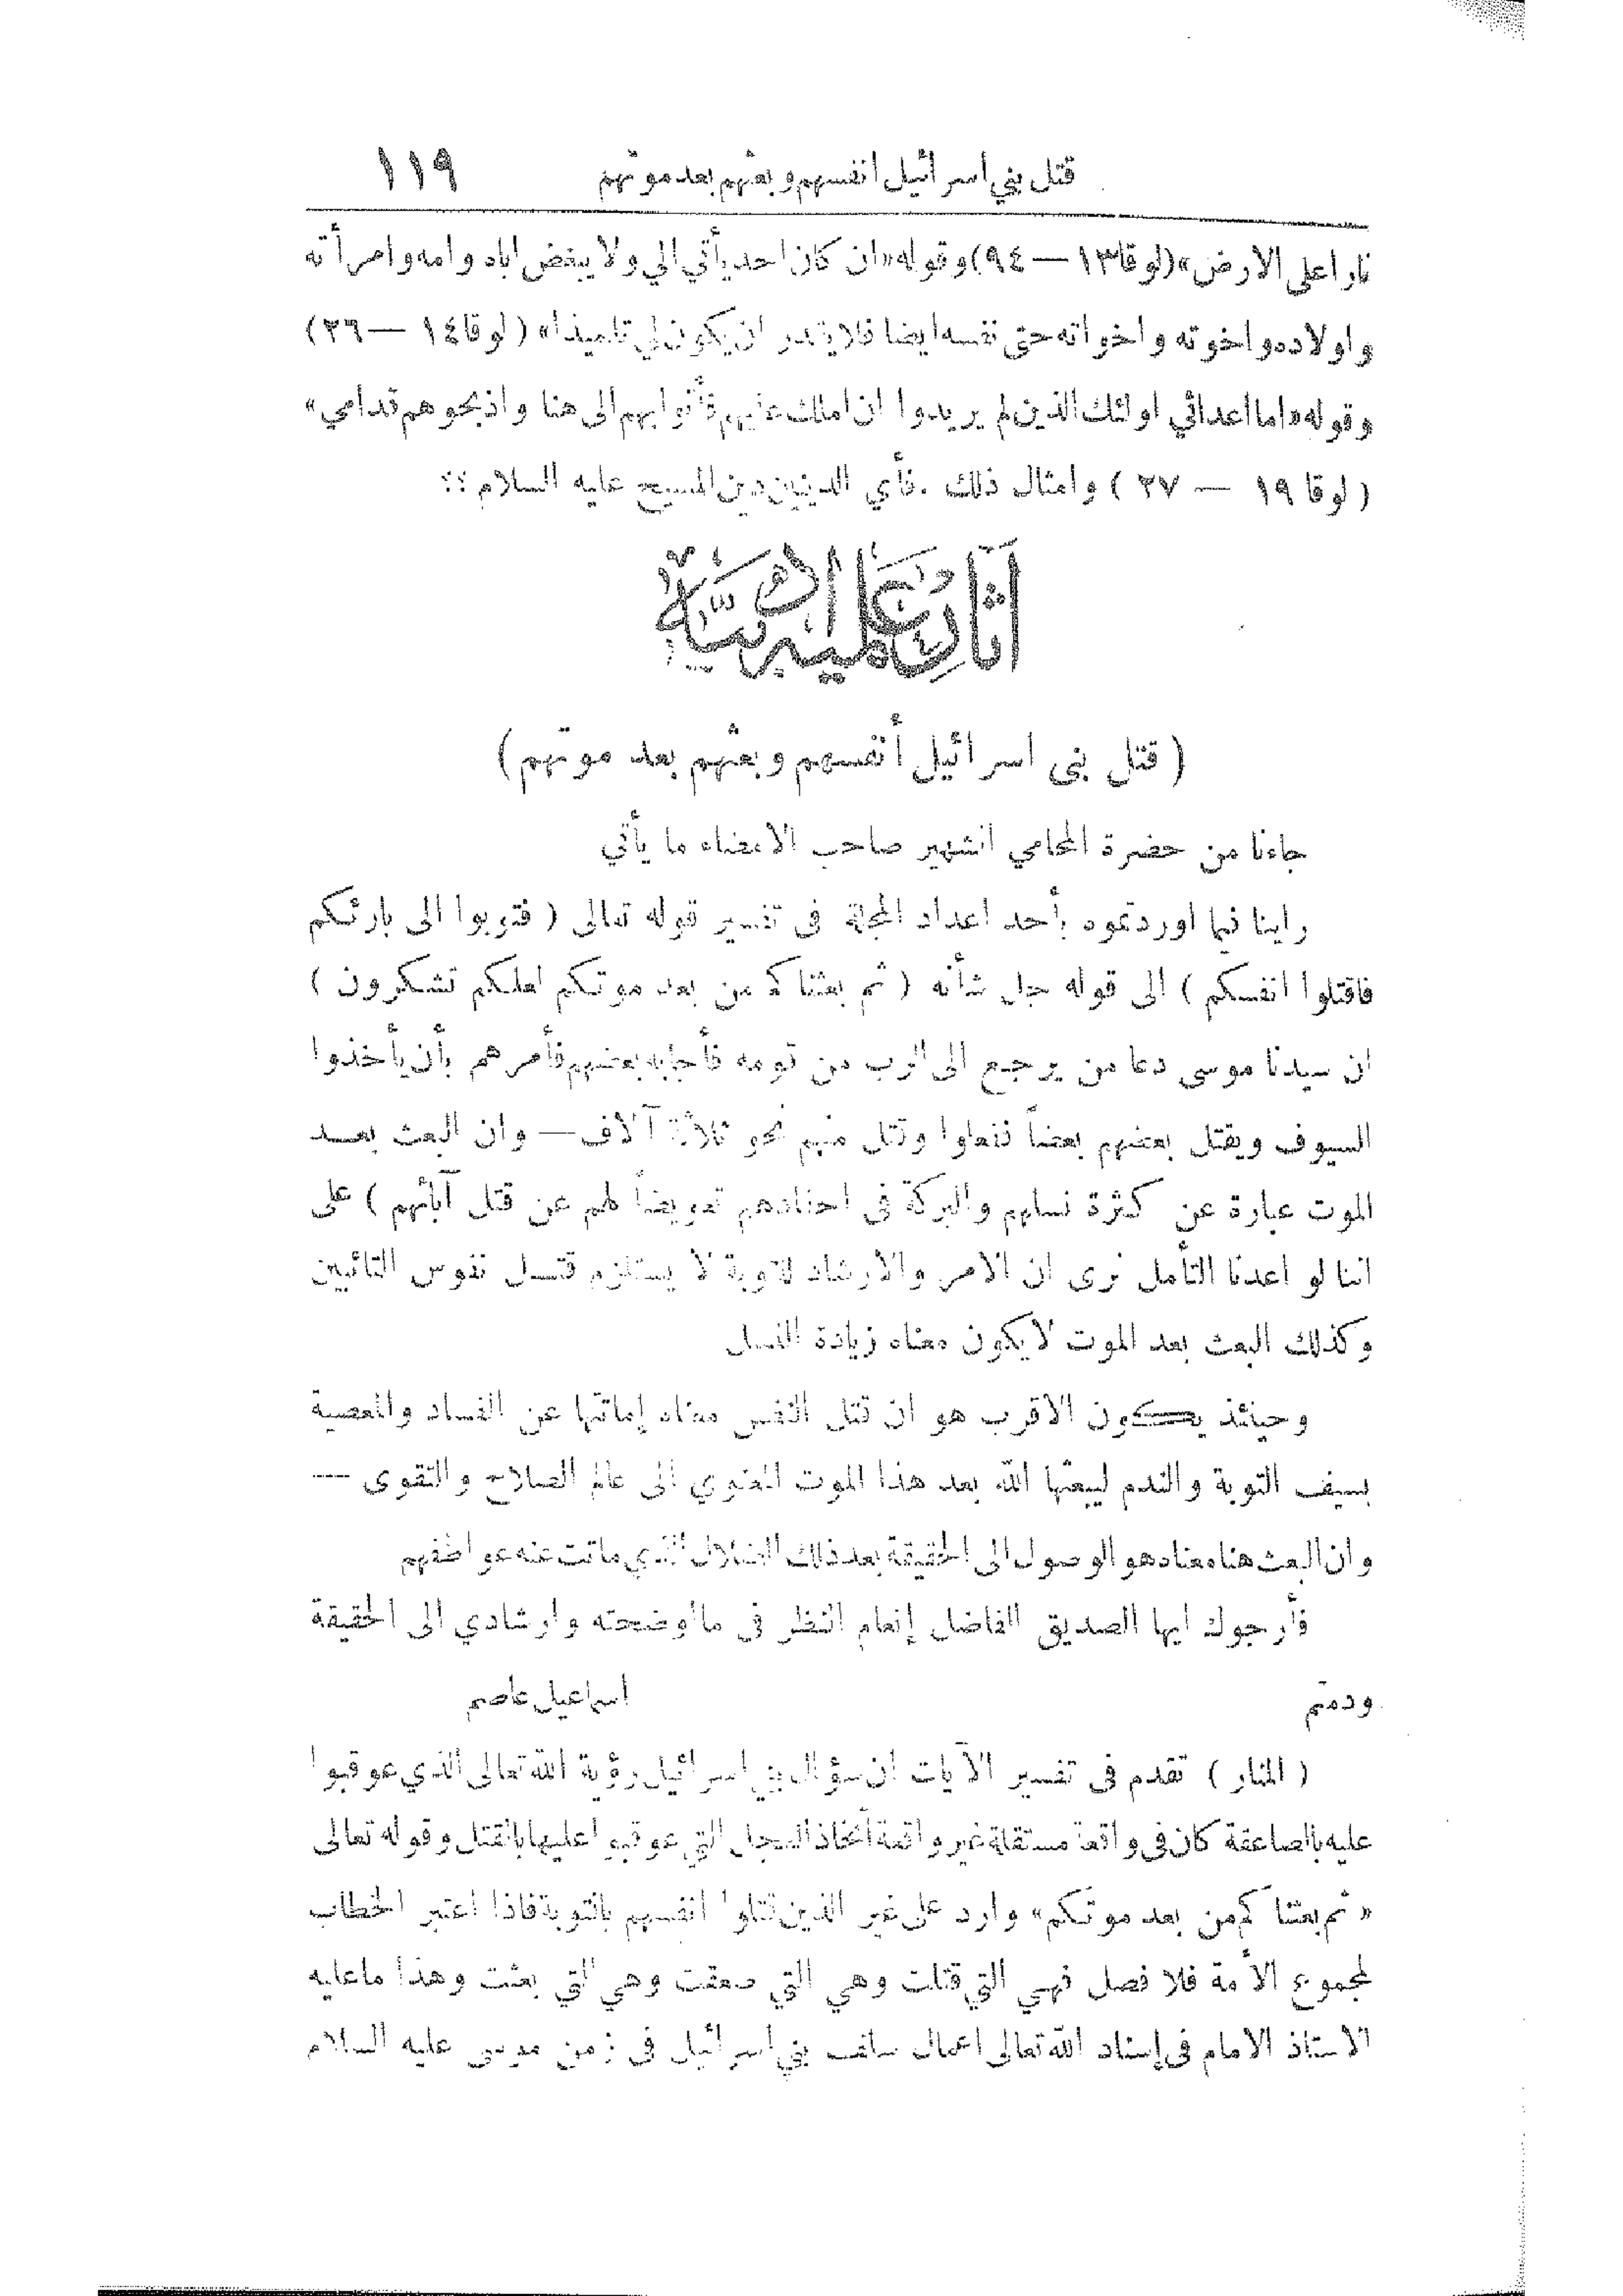 قتل بني اسرائيل انفسهم وبعثهم بعد موتهم ١١٩
نارا على الارض» (لوقا١٣ — ٩٤) وقوله «ان كان احد يأتي الي ولا يبغض اباه وامه وامرأته
واولاده واخوته واخواته حتى نفسه ايضا فلا يقدر ان يكون لي تلميذا» ( لوقا١٤ — ٢٦)
وقوله «اما اعدائي اولئك الذين لم يريدوا ان املك عليهم فأتوا بهم الى هنا واذبحوهم قدامي»
( لوقا ١٩ — ٢٧ ) وامثال ذلك . فأي الدينين دين المسيح عليه السلام ؟؟
آثار علمية ادبية
( قتل بنى اسرائيل أنفسهم وبعثهم بعد موتهم )
جاءنا من حضرة المحامي الشهير صاحب الامضاء ما يأتي
راينا فيما اوردتموه بأحد اعداد المجلة فى تفسير قوله تعالى ( فتوبوا الى بارئكم
فاقتلوا انفسكم ) الى قوله جل شأنه ( ثم بعثناكم من بعد موتكم لعلكم تشكرون )
ان سيدنا موسى دعا من يرجع الى الرب من قومه فأجابه بعضهم فأمرهم بأن يأخذوا
السيوف ويقتل بعضهم بعضاً ففعلوا وقتل منهم نحو ثلاثة آلاف — وان البعث بعد
الموت عبارة عن كثرة نسلهم والبركة فى احفادهم تعويضاً لهم عن قتل آبائهم ) على
اننا لو اعدنا التأمل نرى ان الامر والارشاد للتوبة لا يستلزم قتل نفوس التائبين
وكذلك البعث بعد الموت لا يكون معناه زيادة النسل
وحينئذ يكون الاقرب هو ان قتل النفس معناه إماتتها عن الفساد والمعصية
بسيف التوبة والندم ليبعثها الله بعد هذا الموت المعنوي الى عالم الصلاح والتقوى —
وان البعث هنا معناه هو الوصول الى الحقيقة بعد ذلك الضلال الذي ماتت عنه عواطفهم
فأرجوك ايها الصديق الفاضل إنعام النظر فى ما اوضحته وارشادي الى الحقيقة
ودمتم اسماعيل عاصم
( المنار ) تقدم فى تفسير الآيات ان سؤال بني اسرائيل رؤية الله تعالى الذي عوقبوا
عليه بالصاعقة كان فى واقعة مستقلة غير واقعة اتخاذ العجل التي عوقبوا عليها بالقتل وقوله تعالى
« ثم بعثناكم من بعد موتكم» وارد على غير الذين قتلوا انفسهم بالتوبة فاذا اعتبر الخطاب
لمجموع الأمة فلا فصل فهي التي قتلت وهي التي صعقت وهي التي بعثت وهذا ما عليه
الاستاذ الامام فى إسناد الله تعالى اعمال سلف بني اسرائيل فى زمن موسى عليه السلام